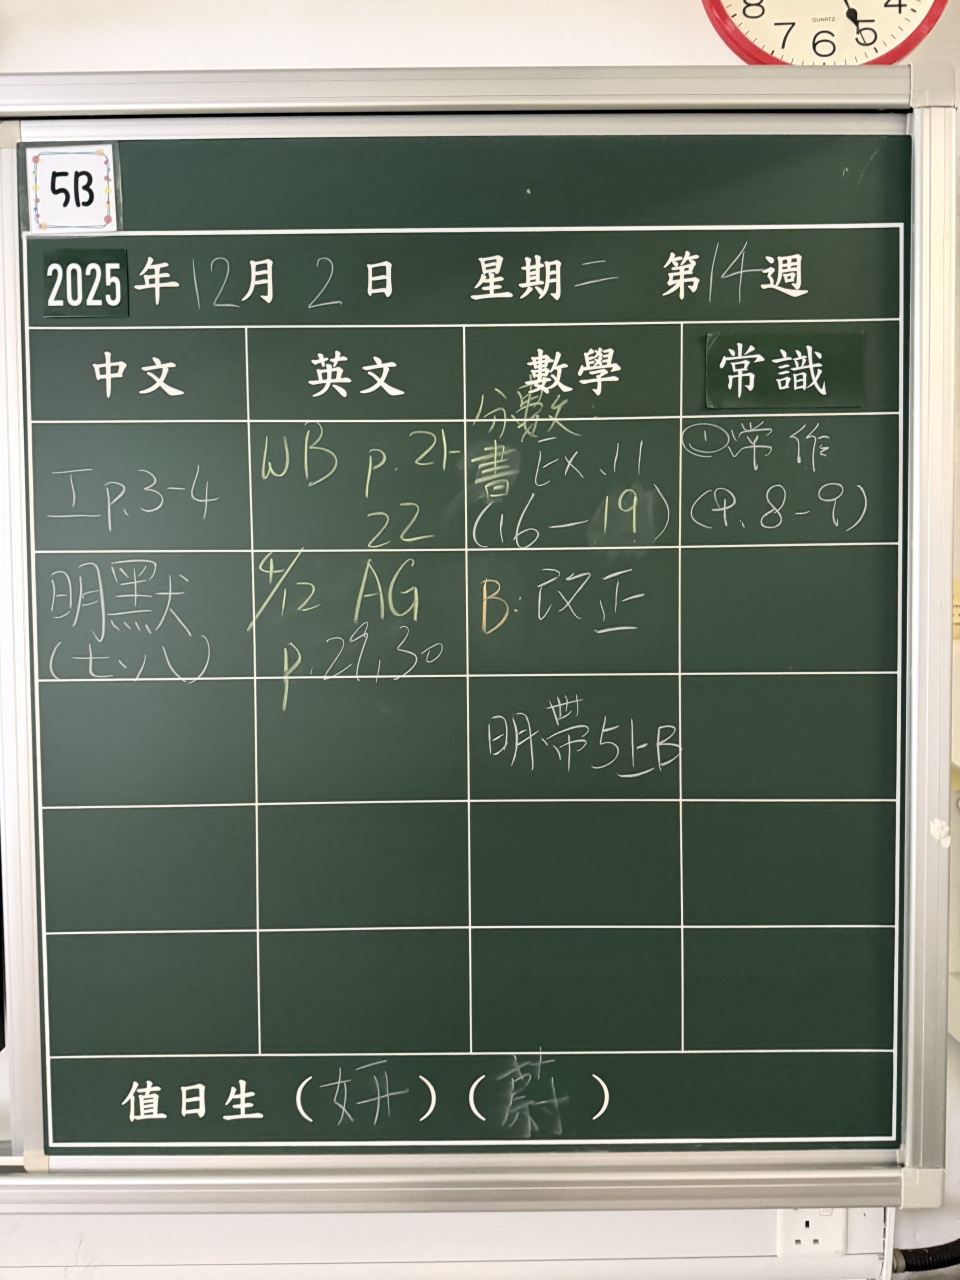 8 7 6 5 4
QUARTZ
5B
2025年12月2日 星期二 第14週
中文 英文 數學 常識
工p.3-4
WB p.21-
22
分數
書 Ex.11
(16—19)
①常作
(P.8-9)
明默
(七、八)
4/12 AG
p.29,30
B: 改正
明帶5上B
值日生（妍）（蔚）